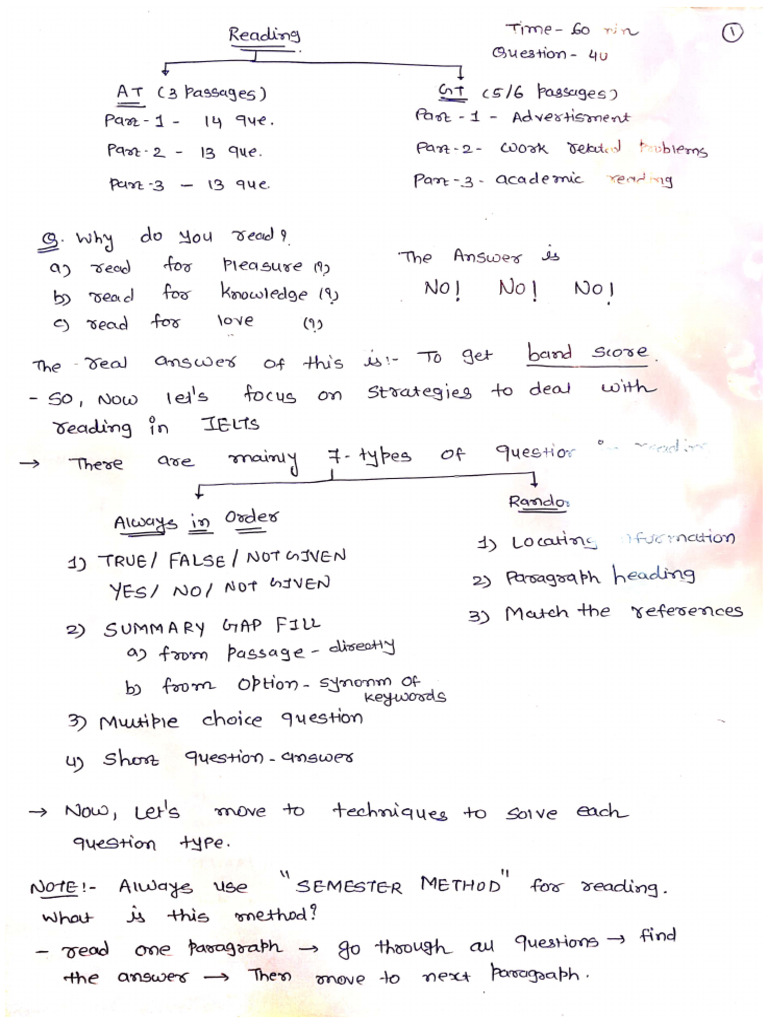 Reading
Time - 60 min
Question - 40
1
AT (3 Passages)
Part-1 - 14 que.
Part-2 - 13 que.
Part-3 - 13 que.
GT (5/6 Passages)
Part-1 - Advertisment
Part-2- work related Problems
Part-3- academic reading
Q. Why do you read?
a) read for Pleasure (?)
b) read for knowledge (?)
c) read for love (?)
The Answer is
NO! NO! NO!
The real answer of this is:- To get band score.
- SO, Now let's focus on strategies to deal with
reading in IELTS
→ There are mainly 7-types of question in reading
Always in Order
1) TRUE/ FALSE/ NOT GIVEN
YES/ NO/ NOT GIVEN
2) SUMMARY GAP FILL
a) from Passage - directly
b) from Option - synonm of
keywords
3) Multiple choice question
4) Short question-answer
Rando
1) Locating information
2) Paragraph heading
3) Match the references
→ Now, Let's move to techniques to solve each
question type.
NOTE:- Always use "SEMESTER METHOD" for reading.
What is this method?
- read one paragraph → go through all questions → find
the answer → Then move to next Paragraph.